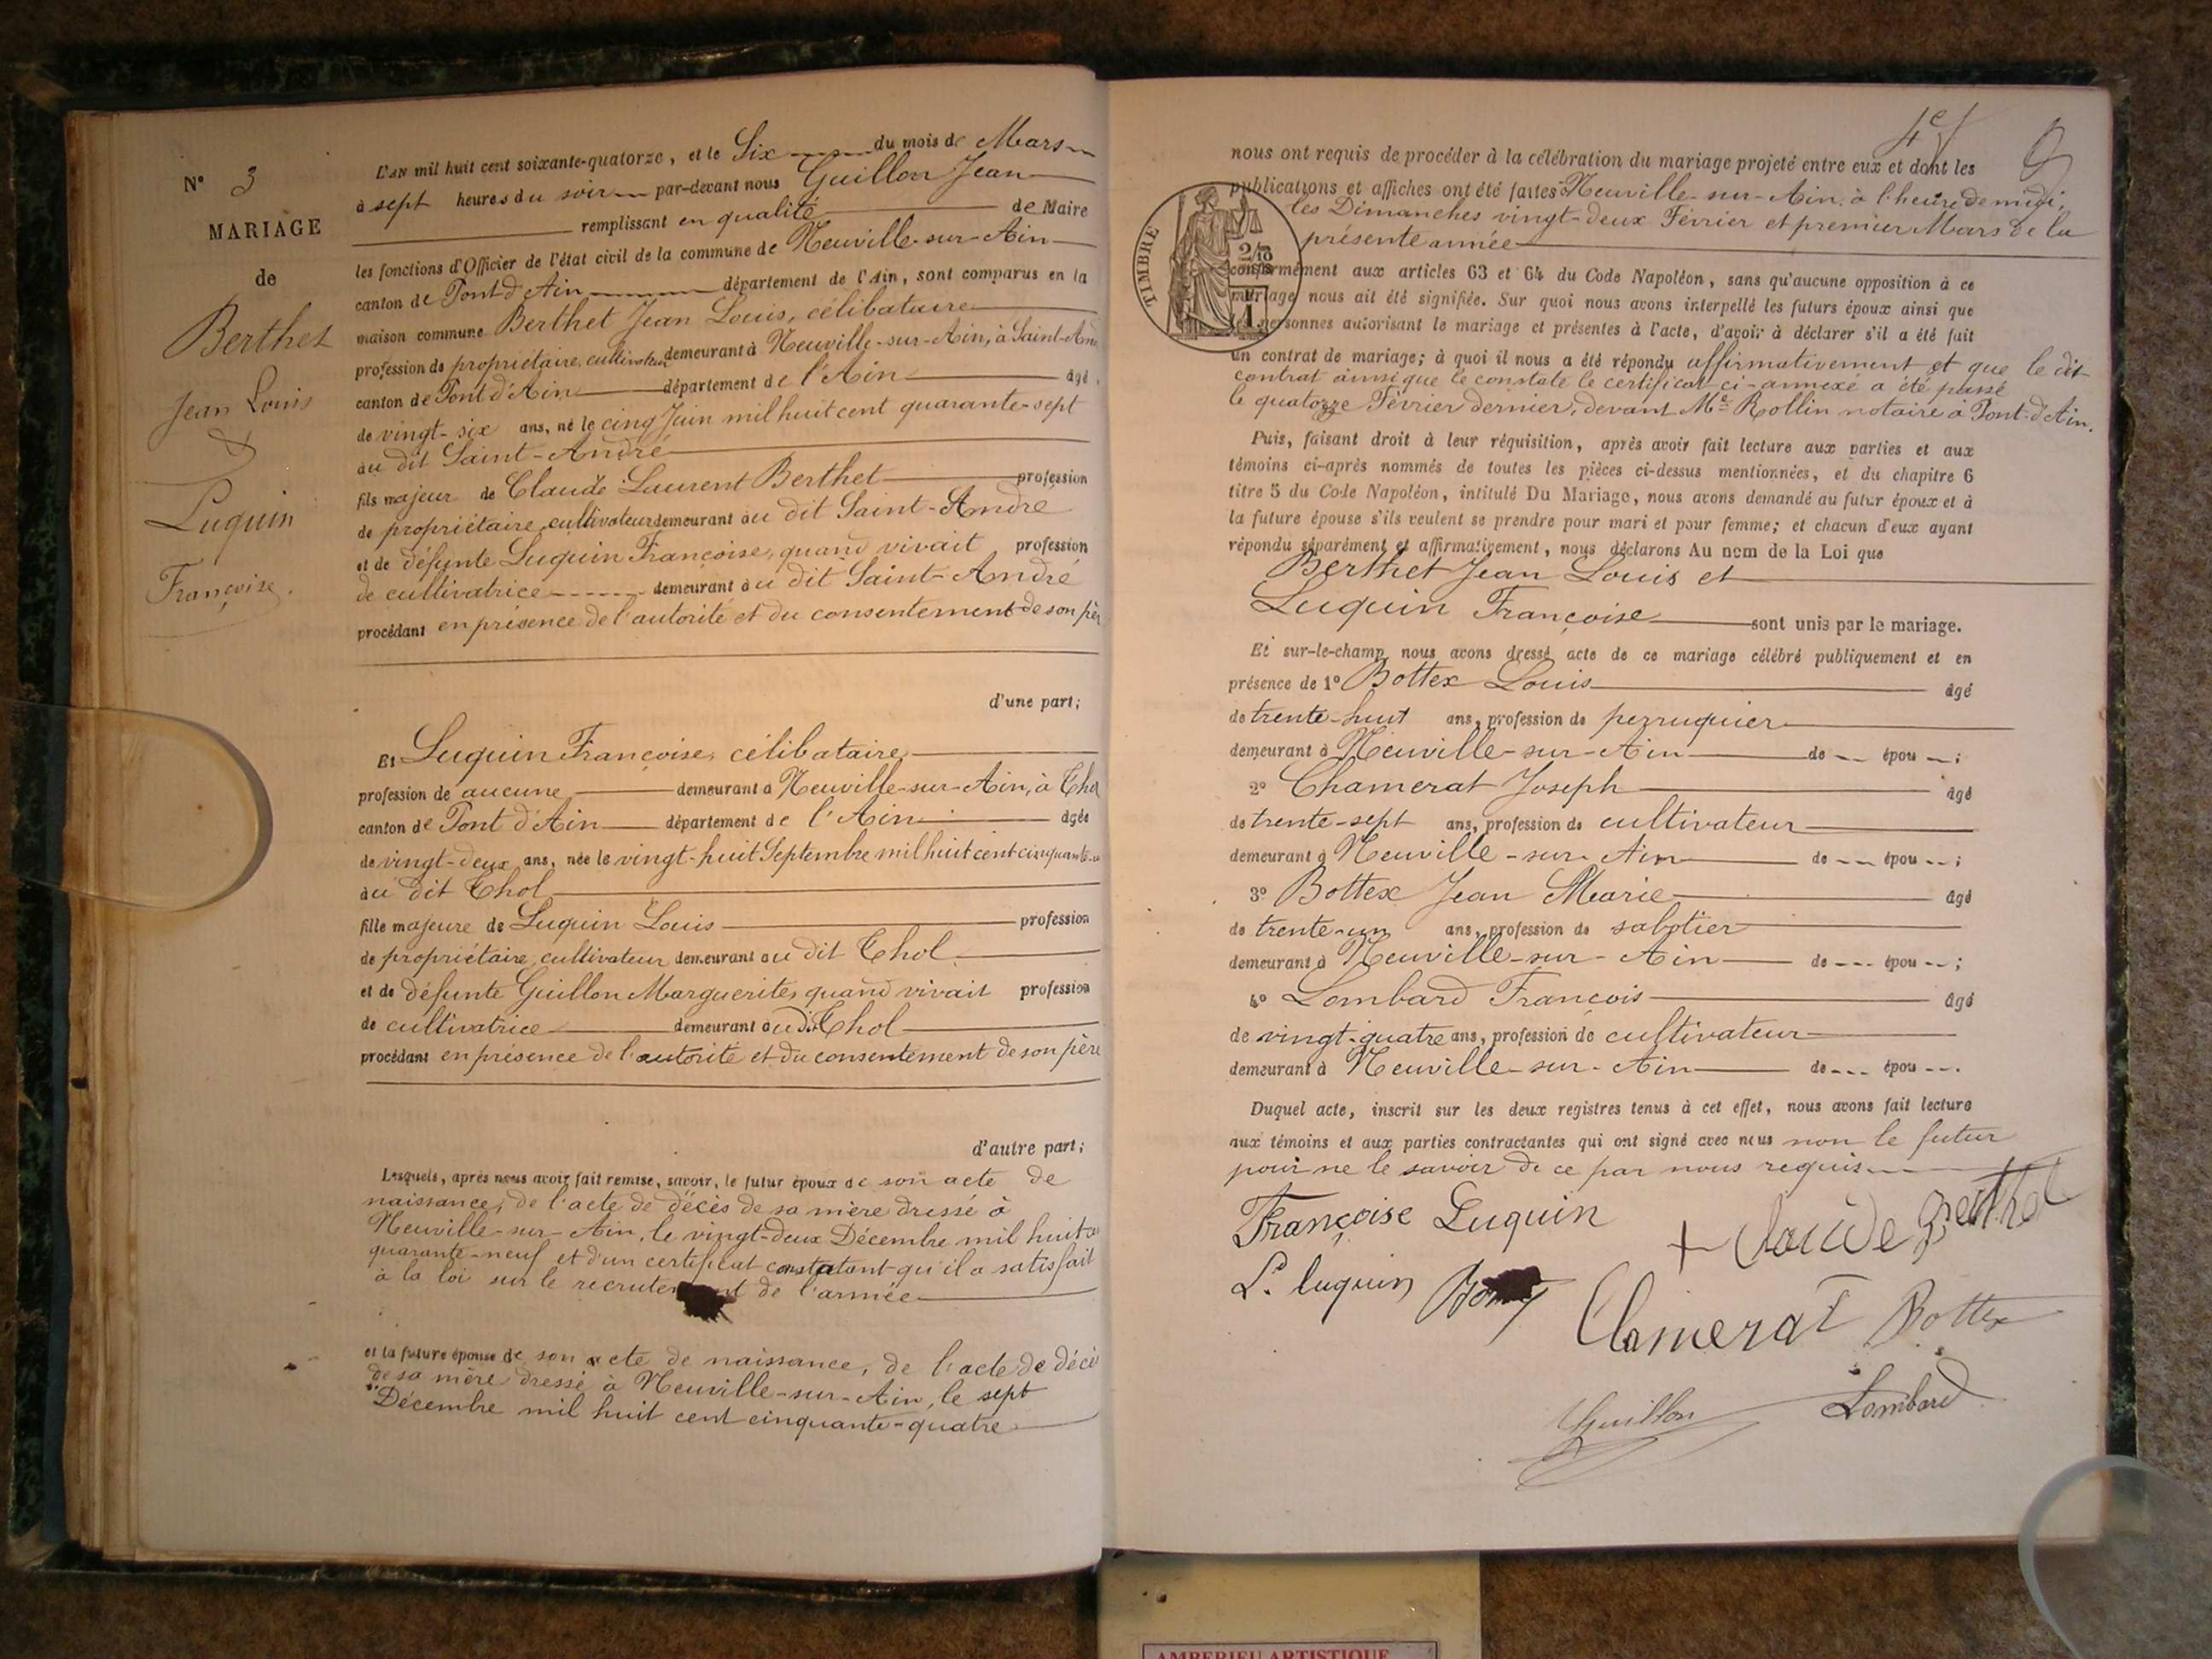 N° 3
MARIAGE
de
Berthet
Jean Louis
&
Luquin
Françoise.
L'AN mil huit cent soixante-quatorze, et le Six du mois de Mars
à sept heures du soir par-devant nous Guillon Jean
remplissant en qualité de Maire
les fonctions d'Officier de l'état civil de la commune de Neuville-sur-Ain
canton de Pont d'Ain département de l'Ain, sont comparus en la
maison commune Berthet Jean Louis, célibataire
profession de propriétaire, cultivateur demeurant à Neuville-sur-Ain, à Saint-And
canton de Pont d'Ain département de l'Ain âgé
de vingt-six ans, né le cinq Juin mil huit cent quarante-sept
au dit Saint-André
fils majeur de Claude Laurent Berthet profession
de propriétaire, cultivateur demeurant au dit Saint-André
et de défunte Luquin Françoise, quand vivait profession
de cultivatrice demeurant au dit Saint-André
procédant en présence de l'autorité et du consentement de son pèr
d'une part;
Et Luquin Françoise, célibataire
profession de aucune demeurant à Neuville-sur-Ain, à Thol
canton de Pont d'Ain département de l'Ain âgée
de vingt-deux ans, née le vingt-huit Septembre mil huit cent cinquante-u
au dit Thol
fille majeure de Luquin Louis profession
de propriétaire, cultivateur demeurant au dit Thol
et de défunte Guillon Marguerite, quand vivait profession
de cultivatrice demeurant au dit Thol
procédant en présence de l'autorité et du consentement de son père
d'autre part;
Lesquels, après nous avoir fait remise, savoir, le futur époux de son acte de
naissance, de l'acte de décès de sa mère dressé à
Neuville-sur-Ain, le vingt-deux Décembre mil huit c
quarante-neuf et d'un certificat constatant qu'il a satisfait
à la loi sur le recrutement de l'armée
et la future épouse de son acte de naissance, de l'acte de décè
de sa mère dressé à Neuville-sur-Ain, le sept
Décembre mil huit cent cinquante-quatre
4e f
nous ont requis de procéder à la célébration du mariage projeté entre eux et dont les
publications et affiches ont été faites Neuville-sur-Ain, à l'heure de midi,
les Dimanches vingt-deux Février et premier Mars de la
présente année
TIMBRE
conformément aux articles 63 et 64 du Code Napoléon, sans qu'aucune opposition à ce
mariage nous ait été signifiée. Sur quoi nous avons interpellé les futurs époux ainsi que
les personnes autorisant le mariage et présentes à l'acte, d'avoir à déclarer s'il a été fait
un contrat de mariage; à quoi il nous a été répondu affirmativement et que le dit
contrat ainsi que le constate le certificat ci-annexé a été passé
le quatorze Février dernier, devant Me Rollin notaire à Pont-d'Ain.
Puis, faisant droit à leur réquisition, après avoir fait lecture aux parties et aux
témoins ci-après nommés de toutes les pièces ci-dessus mentionnées, et du chapitre 6
titre 5 du Code Napoléon, intitulé Du Mariage, nous avons demandé au futur époux et à
la future épouse s'ils veulent se prendre pour mari et pour femme; et chacun d'eux ayant
répondu séparément et affirmativement, nous déclarons Au nom de la Loi que
Berthet Jean Louis et
Luquin Françoise sont unis par le mariage.
Et sur-le-champ nous avons dressé acte de ce mariage célébré publiquement et en
présence de 1° Bottex Louis âgé
de trente-huit ans, profession de perruquier
demeurant à Neuville-sur-Ain de épou ;
2° Chamerat Joseph âgé
de trente-sept ans, profession de cultivateur
demeurant à Neuville-sur-Ain de épou ;
3° Bottex Jean Marie âgé
de trente-un ans, profession de sabotier
demeurant à Neuville-sur-Ain de épou ;
4° Lombard François âgé
de vingt-quatre ans, profession de cultivateur
demeurant à Neuville-sur-Ain de épou .
Duquel acte, inscrit sur les deux registres tenus à cet effet, nous avons fait lecture
aux témoins et aux parties contractantes qui ont signé avec nous non le futur
pour ne le savoir de ce par nous requis
Françoise Luquin + Claude Berthet
L. luquin
Clamerat Bottex
Guillon Lombard
AMBERIEU ARTISTIQUE